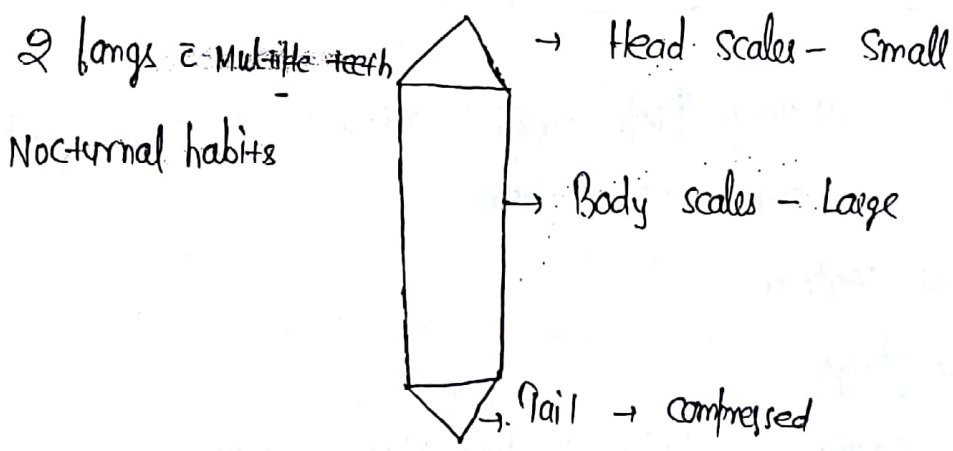 2 fangs c̄ Multiple teeth
Nocturnal habits
→ Head scales - Small
→ Body scales - Large
→ Tail → compressed